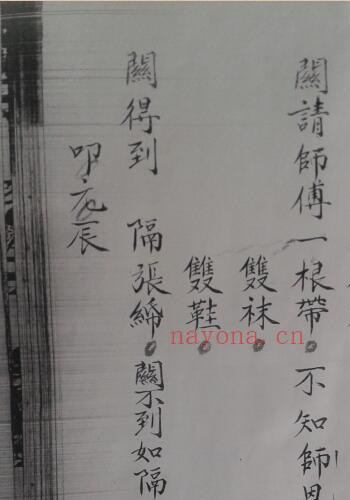 關請師傅一根帶。不知師
雙袜。
雙鞋。
關得到 隔張締。關不到如隔
叩元辰
nayona.cn